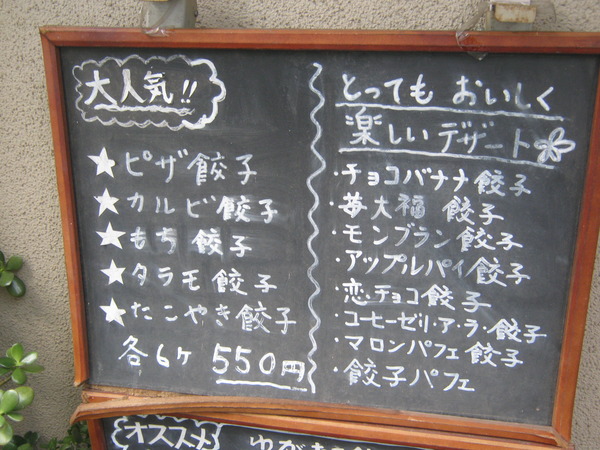 大人気!!
★ピザ餃子
★カルビ餃子
★もち餃子
★タラモ餃子
★たこやき餃子
各6ヶ 550円
とっても おいしく
楽しいデザート
・チョコバナナ餃子
・苺大福 餃子
・モンブラン餃子
・アップルパイ餃子
・恋チョコ餃子
・コーヒーゼリ・ア・ラ・餃子
・マロンパフェ餃子
・餃子パフェ
オススメ